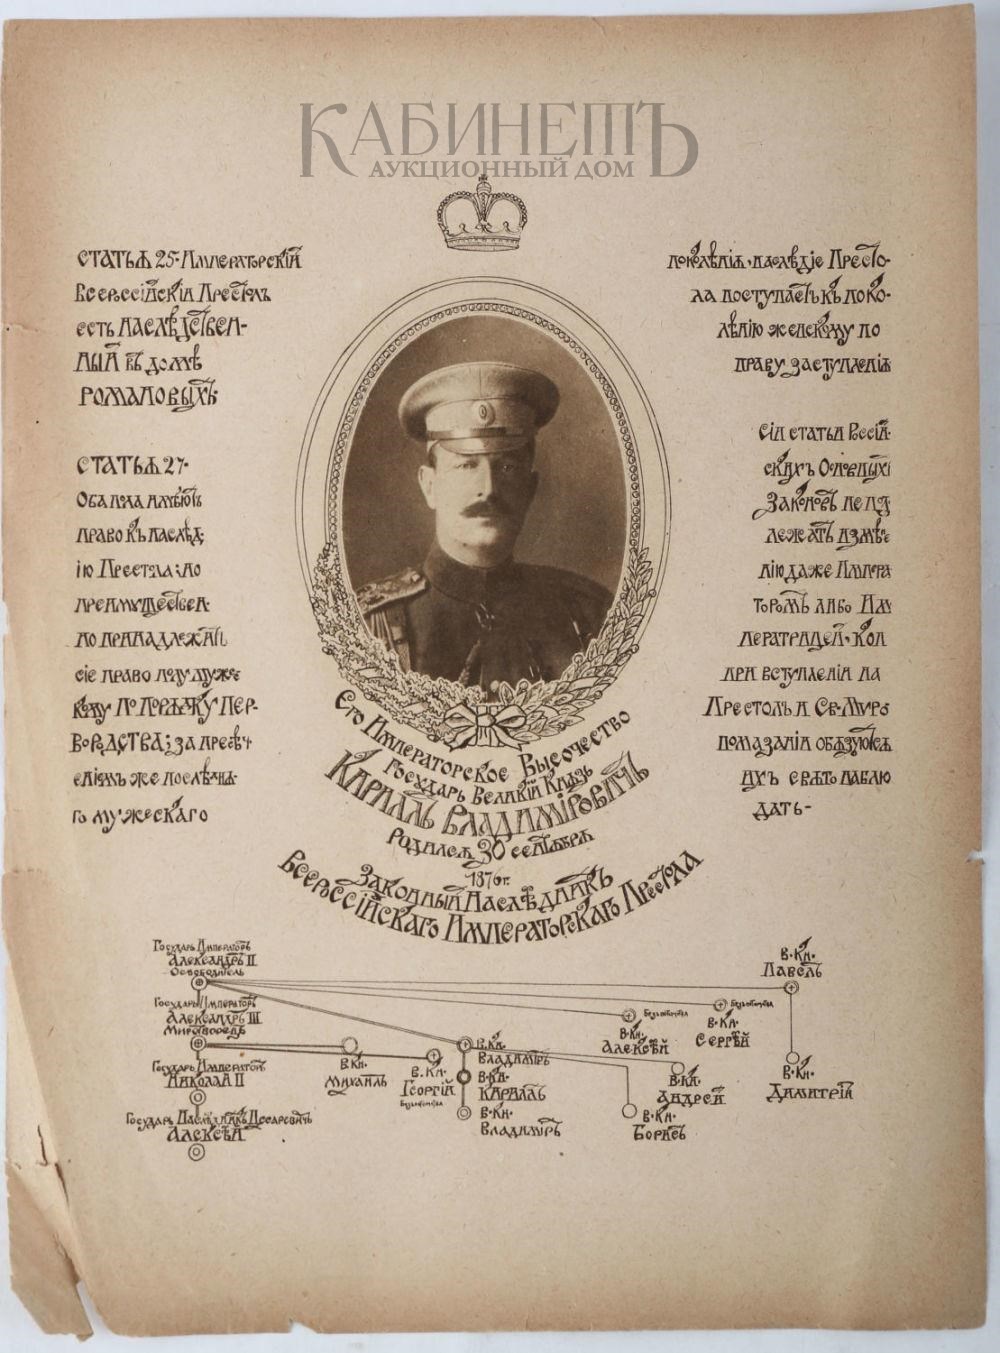 КАБИНЕТЪ
АУКЦИОННЫЙ ДОМ
СТАТЬЯ 25· ИМПЕРАТОРСКІЙ
ВСЕРОССІЙСКІЙ ПРЕСТОЛЪ
ЕСТЬ НАСЛѢДСТВЕН-
НЫЙ ВЪ ДОМѢ
РОМАНОВЫХЪ·
СТАТЬЯ 27·
ОБА ПОЛА ИМѢЮТЪ
ПРАВО КЪ НАСЛѢД-
ІЮ ПРЕСТОЛА; НО
ПРЕИМУЩЕСТВЕН-
НО ПРИНАДЛЕЖИТЪ
СІЕ ПРАВО ПОЛУ МУЖС-
КОМУ ПО ПОРЯДКУ ПЕР-
ВОРОДСТВА; ЗА ПРЕСѢЧ-
ЕНІЕМЪ ЖЕ ПОСЛѢДНЯ-
ГО МУЖЕСКАГО
ПОКОЛѢНІЯ· НАСЛѢДІЕ ПРЕСТО-
ЛА ПОСТУПАЕТЪ КЪ ПОКО-
ЛѢНІЮ ЖЕНСКОМУ ПО
ПРАВУ ЗАСТУПЛЕНІЯ
СІИ СТАТЬИ РОССІЙ-
СКИХЪ ОСНОВНЫХЪ
ЗАКОНОВЪ НЕ ПОД
ЛЕЖАТЪ ИЗМѢНЕ
НІЮ ДАЖЕ ИМПЕРА
ТОРОМЪ ЛИБО ИМ
ПЕРАТРИЦЕЙ· КОИ
ПРИ ВСТУПЛЕНІИ НА
ПРЕСТОЛЪ И СВ· МИРО
ПОМАЗАНІИ ОБЯЗУЮТСЯ
ИХЪ СВЯТО НАБЛЮ
ДАТЬ-
ЕГО ИМПЕРАТОРСКОЕ ВЫСОЧЕСТВО
ГОСУДАРЬ ВЕЛИКІЙ КНЯЗЬ
КИРИЛЛЪ ВЛАДИМІРОВИЧЪ
РОДИЛСЯ 30 СЕНТЯБРЯ
1876 г.
ЗАКОННЫЙ НАСЛѢДНИКЪ
ВСЕРОССІЙСКАГО ИМПЕРАТОРСКАГО ПРЕСТОЛА
ГОСУДАРЬ ИМПЕРАТОРЪ
АЛЕКСАНДРЪ II
ОСВОБОДИТЕЛЬ
ГОСУДАРЬ ИМПЕРАТОРЪ
АЛЕКСАНДРЪ III
МИРОТВОРЕЦЪ
ГОСУДАРЬ ИМПЕРАТОРЪ
НИКОЛАЙ II
ГОСУДАРЬ НАСЛѢДНИКЪ ЦЕСАРЕВИЧЪ
АЛЕКСѢЙ
В· КН·
МИХАИЛЪ
В· КН·
ГЕОРГІЙ
БЕЗПОТОМСТВА
В· КН·
ВЛАДИМІРЪ
В· КН·
КИРИЛЛЪ
В· КН·
ВЛАДИМІРЪ
БЕЗПОТОМСТВА
В· КН·
АЛЕКСѢЙ
БЕЗПОТОМСТВА
В· КН·
СЕРГѢЙ
В· КН·
ПАВЕЛЪ
В· КН·
АНДРЕЙ
В· КН·
БОРИСЪ
В· КН·
ДИМИТРІЙ